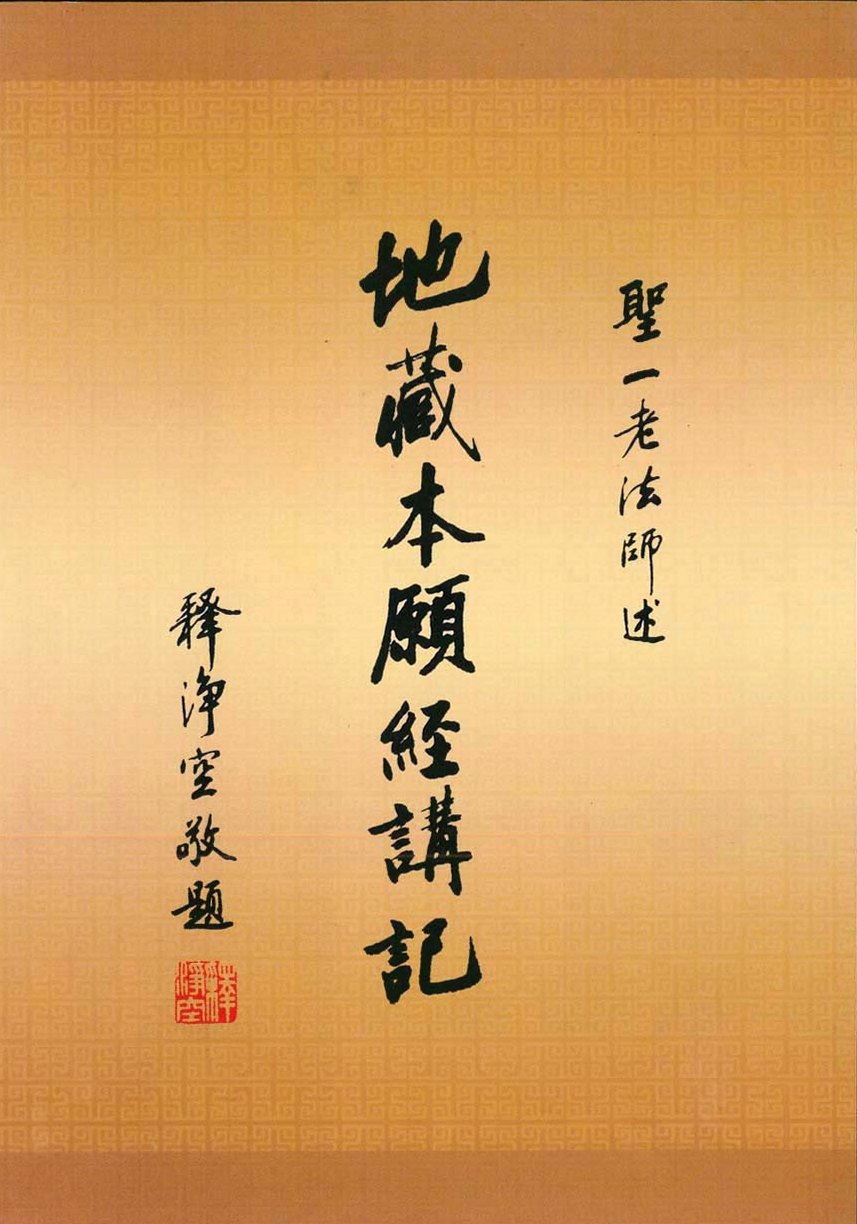 聖一老法師述
地藏本願經講記
釋淨空敬題
釋淨空